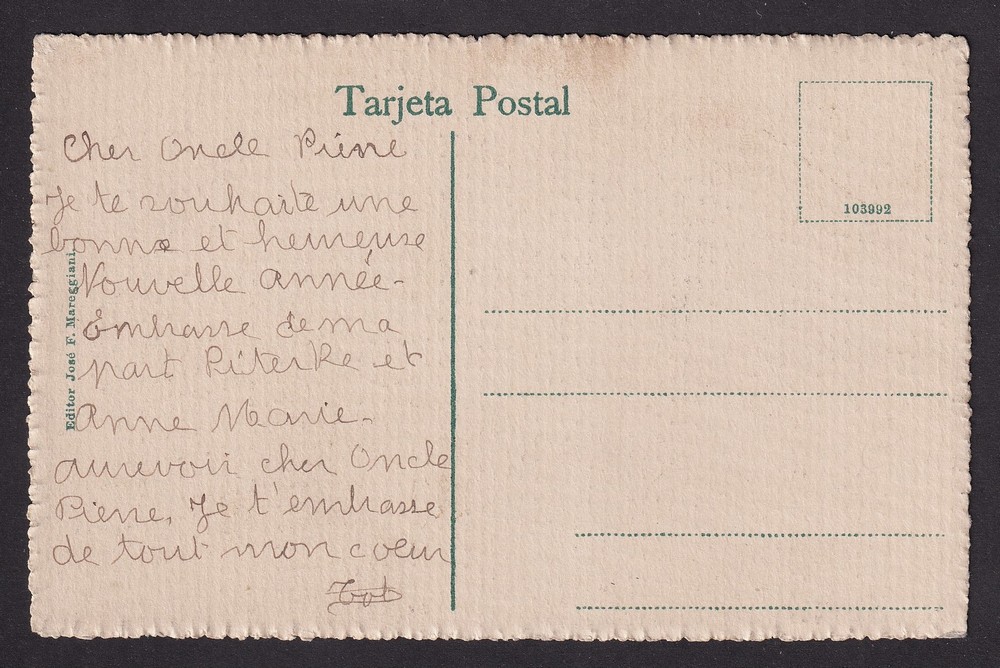 Tarjeta Postal
103992
Editor José F. Mareggiani.
Cher Oncle Pierre
Je te souhaite une
bonne et heureuse
Nouvelle Année-
Embrasse de ma
part Piterke et
Anne Marie-
aurevoir cher Oncle
Pierre, Je t'embrasse
de tout mon coeur